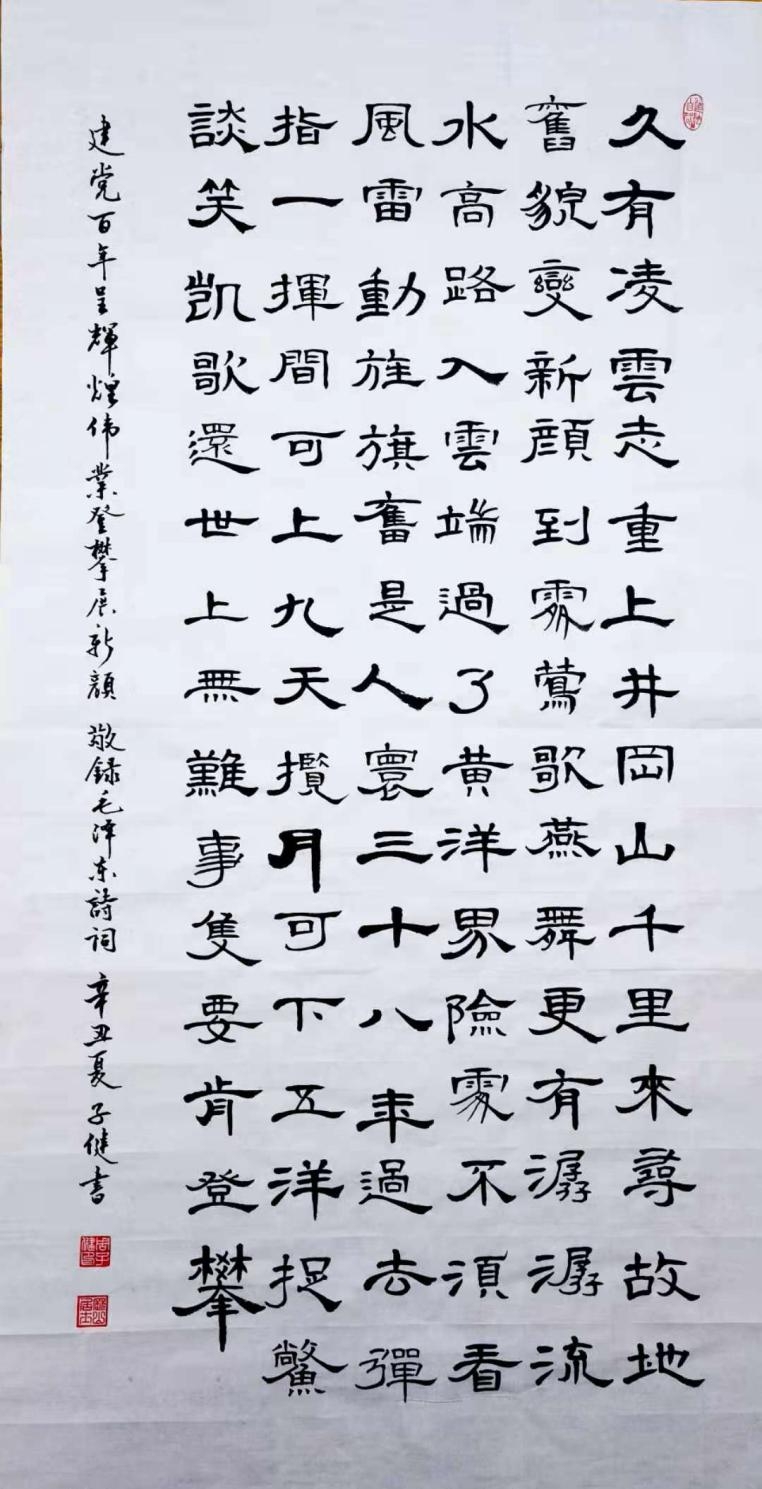 久有凌雲志重上井岡山千里來尋故地
舊貌變新顔到處鶯歌燕舞更有潺潺流
水高路入雲端過了黃洋界險處不須看
風雷動旌旗奮是人寰三十八年過去彈
指一揮間可上九天攬月可下五洋捉鱉
談笑凱歌還世上無難事隻要肯登攀
建党百年呈輝煌伟業登攀展新顔 敬録毛泽东詩词 辛丑夏子健書